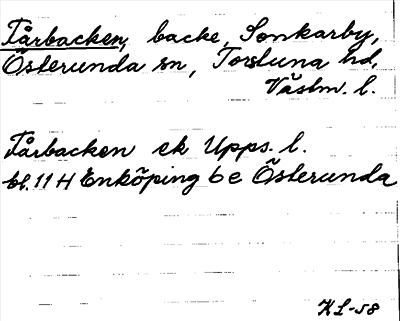 Fårbacken, backe, Sonkarby,
Österunda sn, Torstuna hd,
Västm. l.
Fårbacken ek Upps. l.
bl. 11 H Enköping 6 e Österunda
KL-58